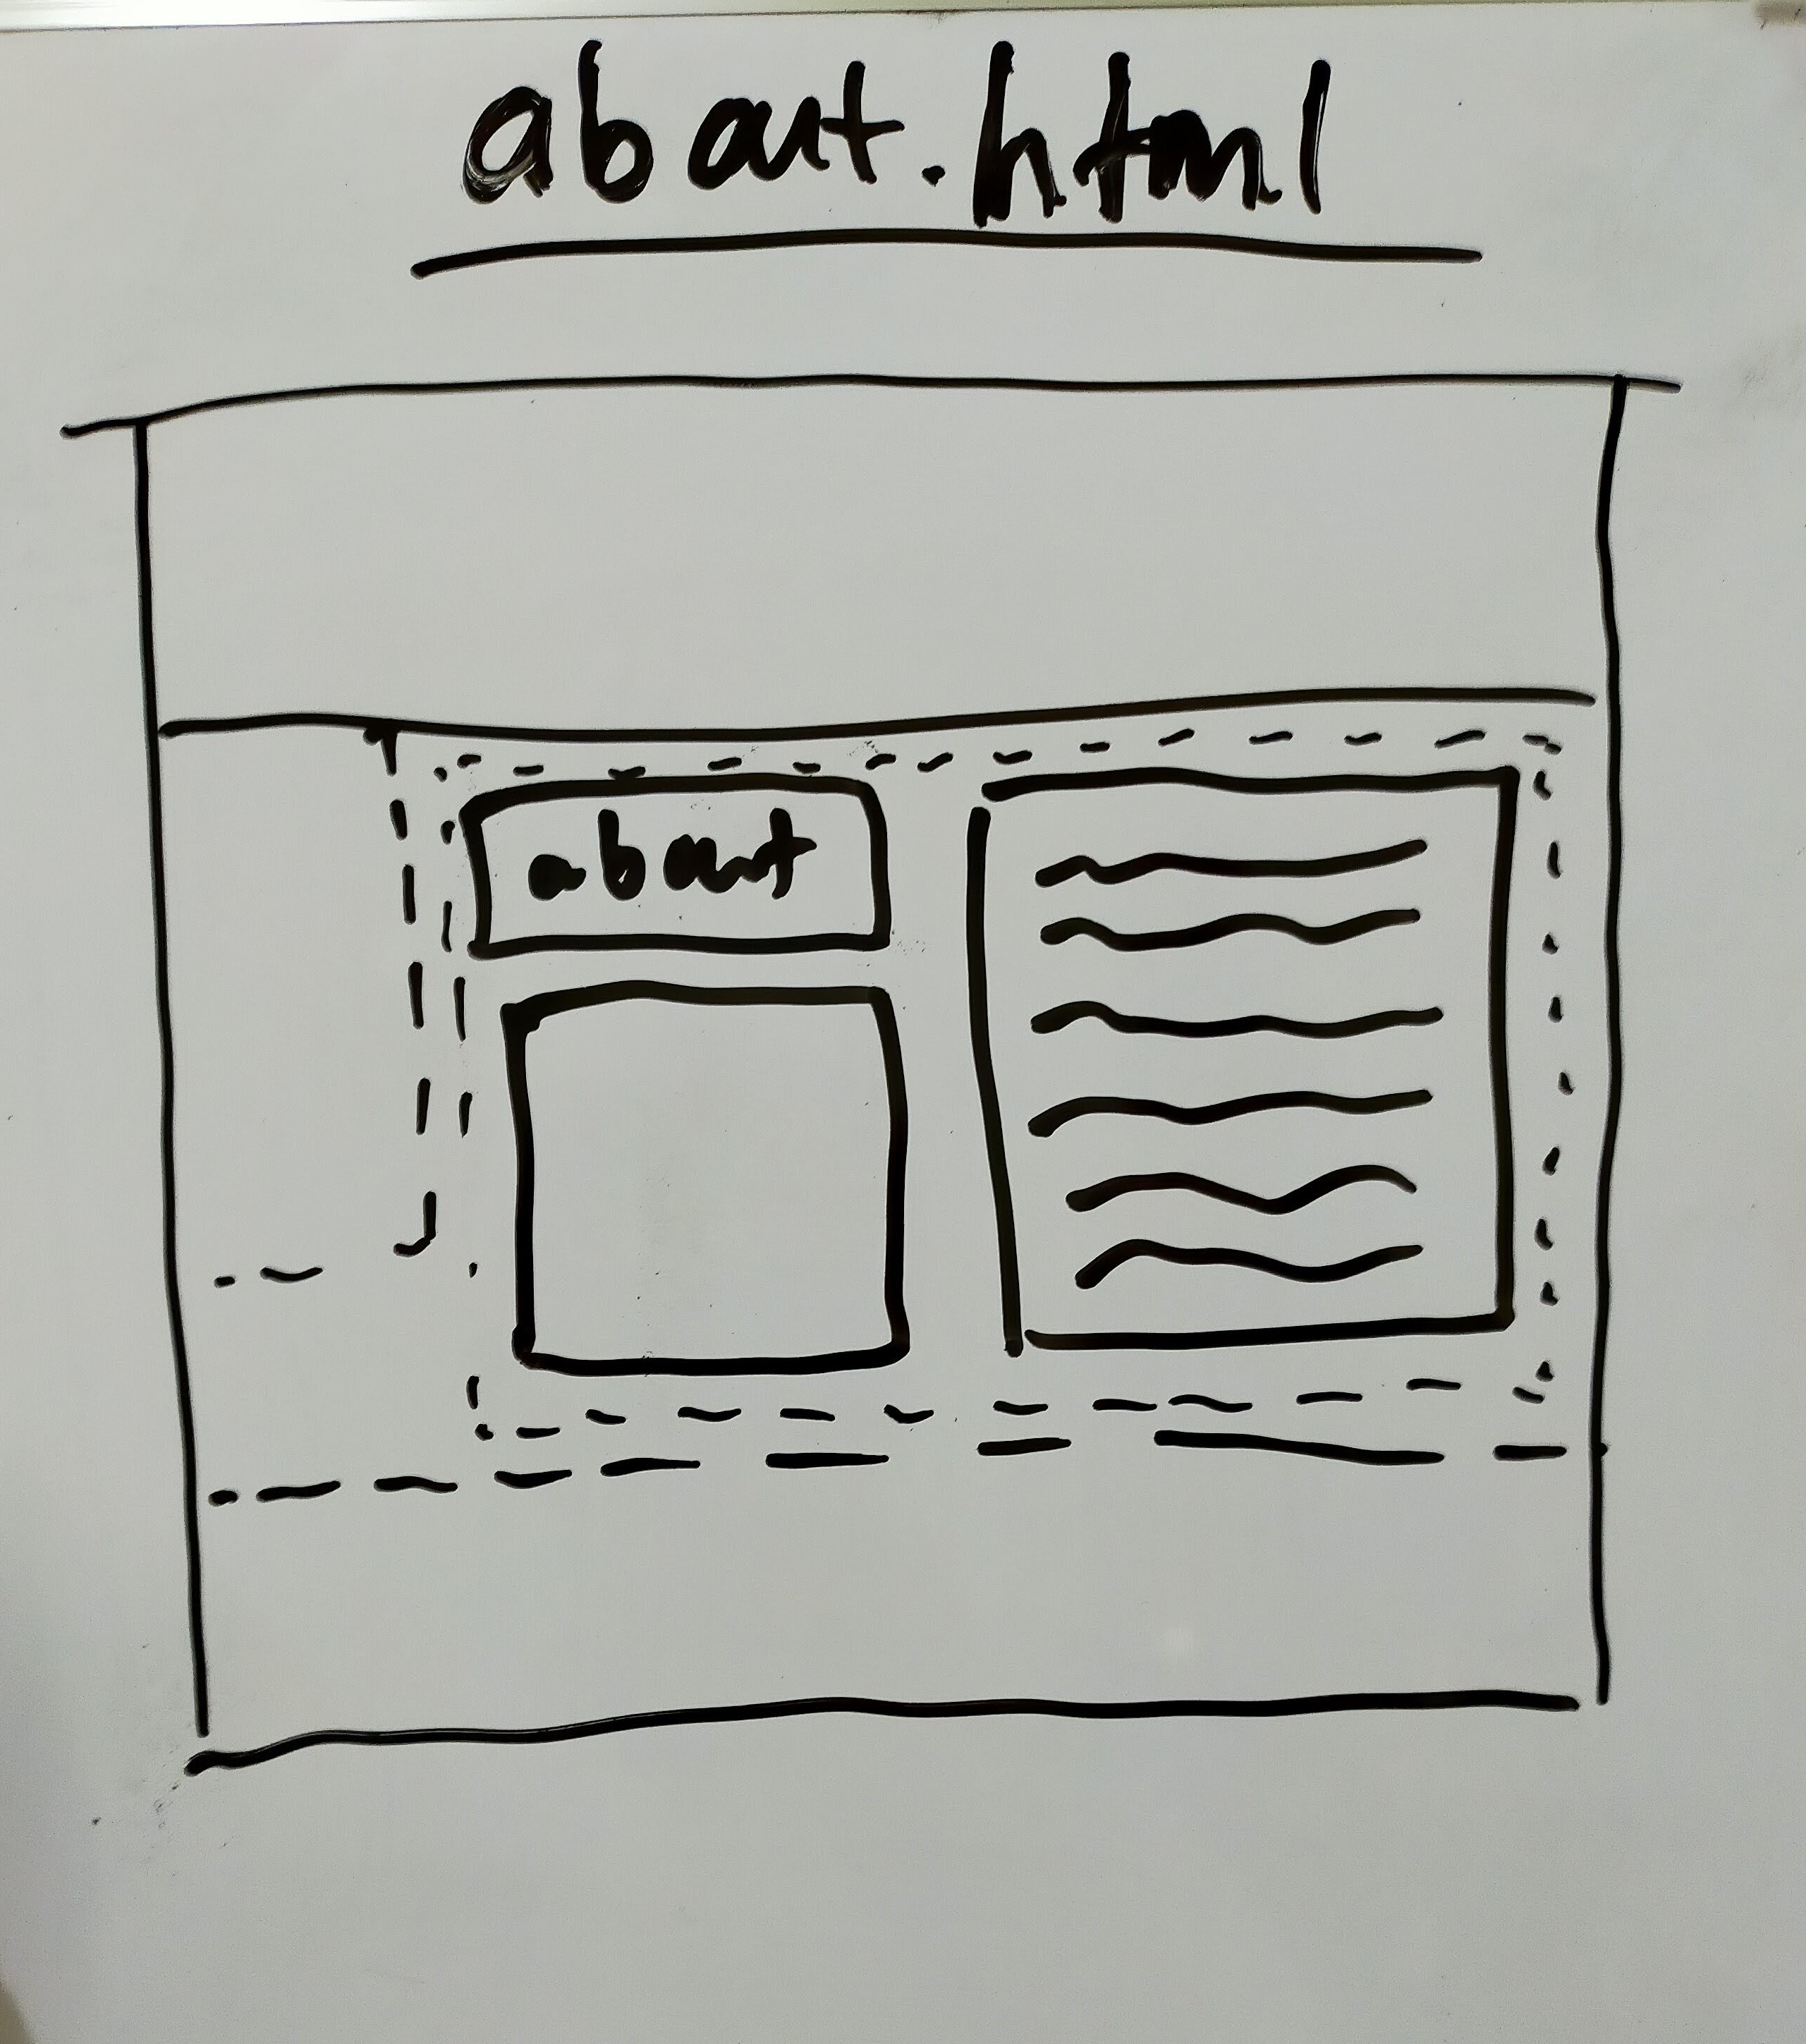 about.html
about